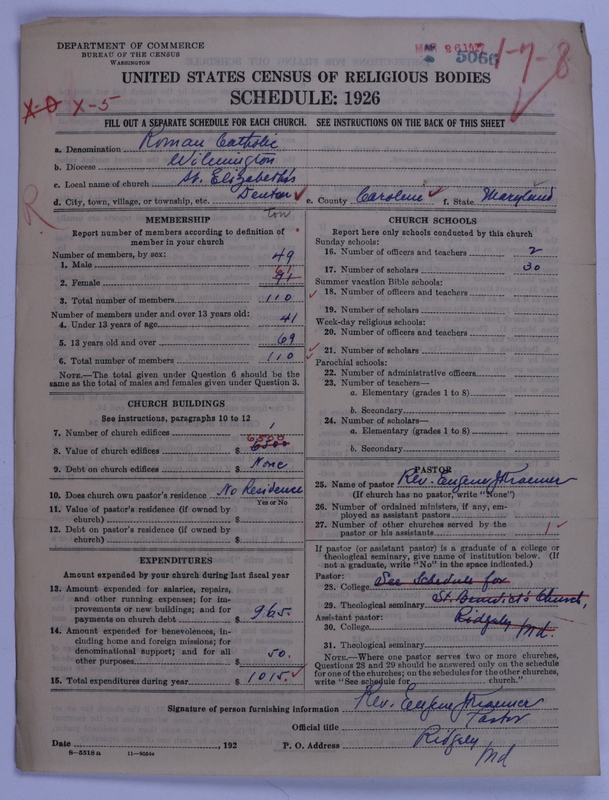 DEPARTMENT OF COMMERCE
BUREAU OF THE CENSUS
WASHINGTON
MAR 26 1927
5066
1-7-8
UNITED STATES CENSUS OF RELIGIOUS BODIES
SCHEDULE: 1926
X-0 X-5
FILL OUT A SEPARATE SCHEDULE FOR EACH CHURCH. SEE INSTRUCTIONS ON THE BACK OF THIS SHEET
a. Denomination Roman Catholic
b. Diocese Wilmington
c. Local name of church St. Elizabeth's
d. City, town, village, or township, etc. Denton e. County Caroline f. State Maryland
R
ton
MEMBERSHIP
Report number of members according to definition of
member in your church
Number of members, by sex:
1. Male 49
61
2. Female
3. Total number of members 110
Number of members under and over 13 years old:
4. Under 13 years of age 41
5. 13 years old and over 69
6. Total number of members 110
NOTE.—The total given under Question 6 should be
same as the total of males and females given under Question 3.
CHURCH BUILDINGS
See instructions, paragraphs 10 to 12
7. Number of church edifices 1
6500
8. Value of church edifices $ 6500
9. Debt on church edifices $ None
10. Does church own pastor's residence No Residence
Yes or No
11. Value of pastor's residence (if owned by
church) $
12. Debt on pastor's residence (if owned by
church) $
EXPENDITURES
Amount expended by your church during last fiscal year
13. Amount expended for salaries, repairs,
and other running expenses; for im-
provements or new buildings; and for
payments on church debt $ 965.
14. Amount expended for benevolences, in-
cluding home and foreign missions; for
denominational support; and for all
other purposes $ 50.
15. Total expenditures during year $ 1015.
CHURCH SCHOOLS
Report here only schools conducted by this church
Sunday schools:
16. Number of officers and teachers 2
17. Number of scholars 30
Summer vacation Bible schools:
18. Number of officers and teachers
19. Number of scholars
Week-day religious schools:
20. Number of officers and teachers
21. Number of scholars
Parochial schools:
22. Number of administrative officers
23. Number of teachers—
a. Elementary (grades 1 to 8)
b. Secondary
24. Number of scholars—
a. Elementary (grades 1 to 8)
b. Secondary
PASTOR
25. Name of pastor Rev. Eugene J. Kraemer
(If church has no pastor, write "None")
26. Number of ordained ministers, if any, em-
ployed as assistant pastors
27. Number of other churches served by the
pastor or his assistants 1
If pastor (or assistant pastor) is a graduate of a college or
theological seminary, give name of institution below. (If
not a graduate, write "No" in the space indicated.)
Pastor:
28. College See Schedule for
29. Theological seminary St. Benedict's Church,
Assistant pastor:
30. College Ridgely Md.
31. Theological seminary
NOTE.—Where one pastor serves two or more churches,
Questions 28 and 29 should be answered only on the schedule
for one of the churches; on the schedules for the other churches,
write "See schedule for church."
Signature of person furnishing information Rev. Eugene J. Kraemer
Official title Pastor
Date , 192 P. O. Address Ridgely, Md
8-5518a 11-9554